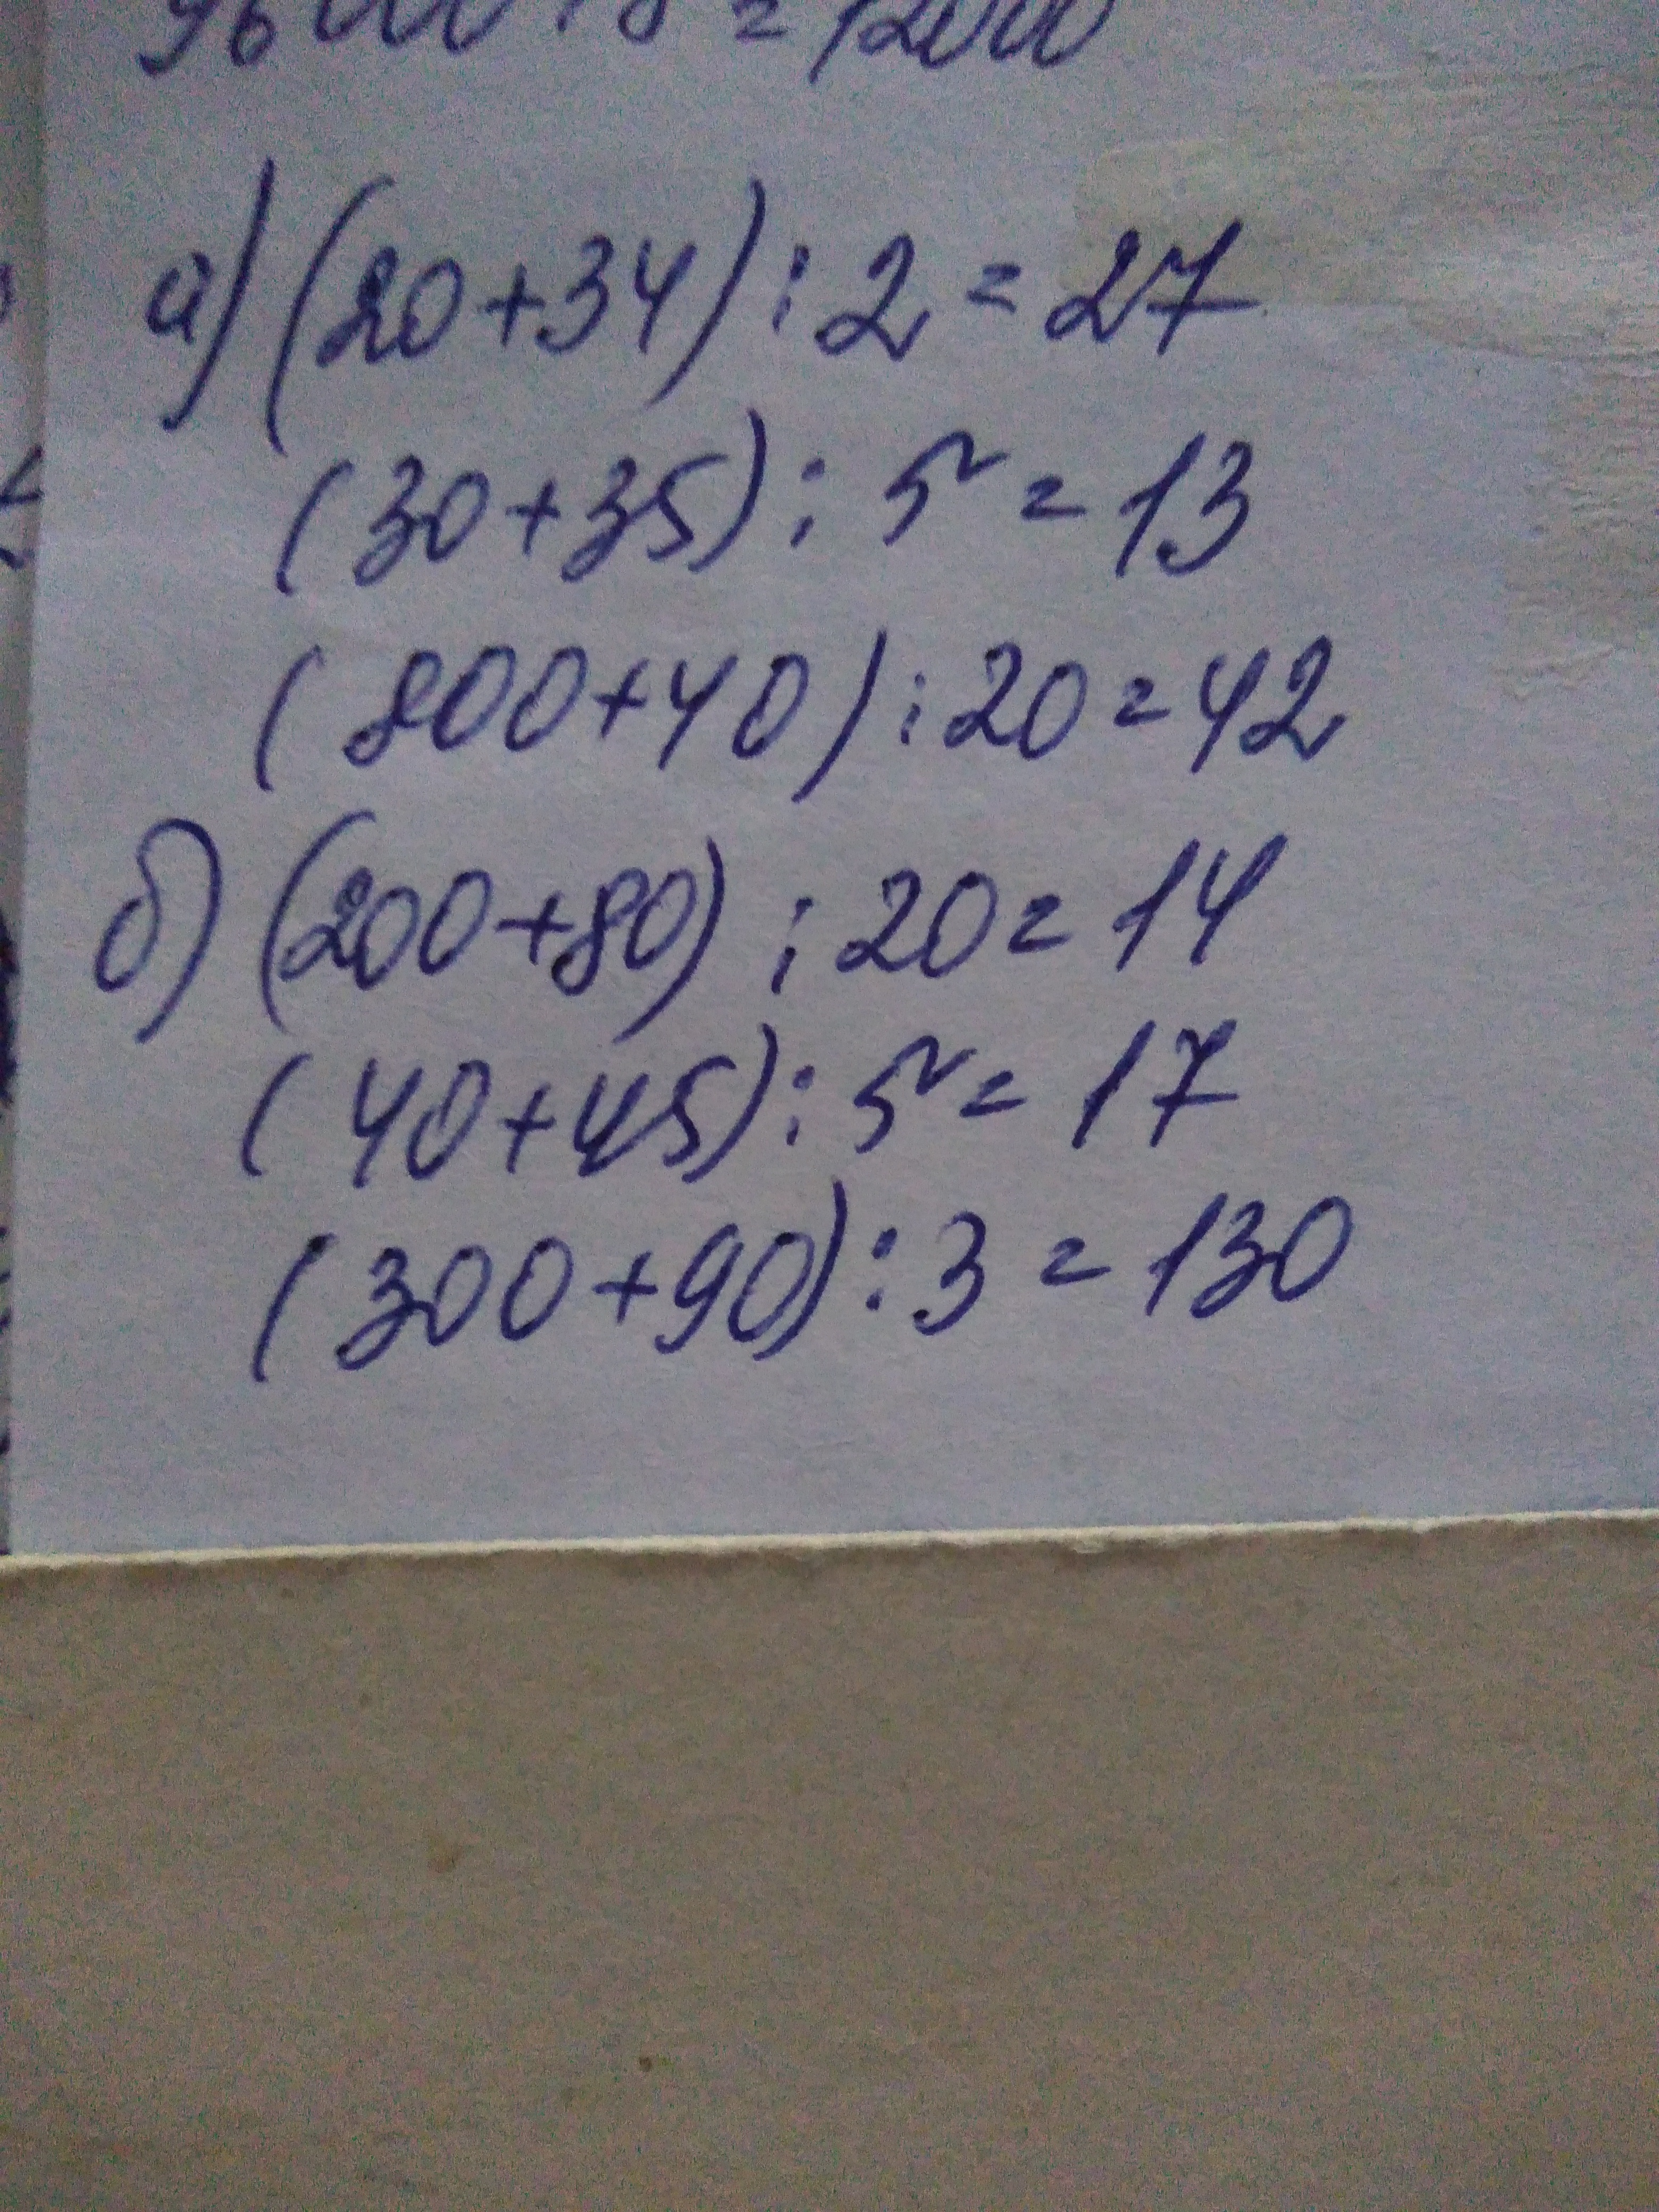 96000 : 8 = 12000
а) (20+34) : 2 = 27
(30+35) : 5 = 13
(800+40) : 20 = 42
б) (200+80) : 20 = 14
(40+45) : 5 = 17
(300+90) : 3 = 130